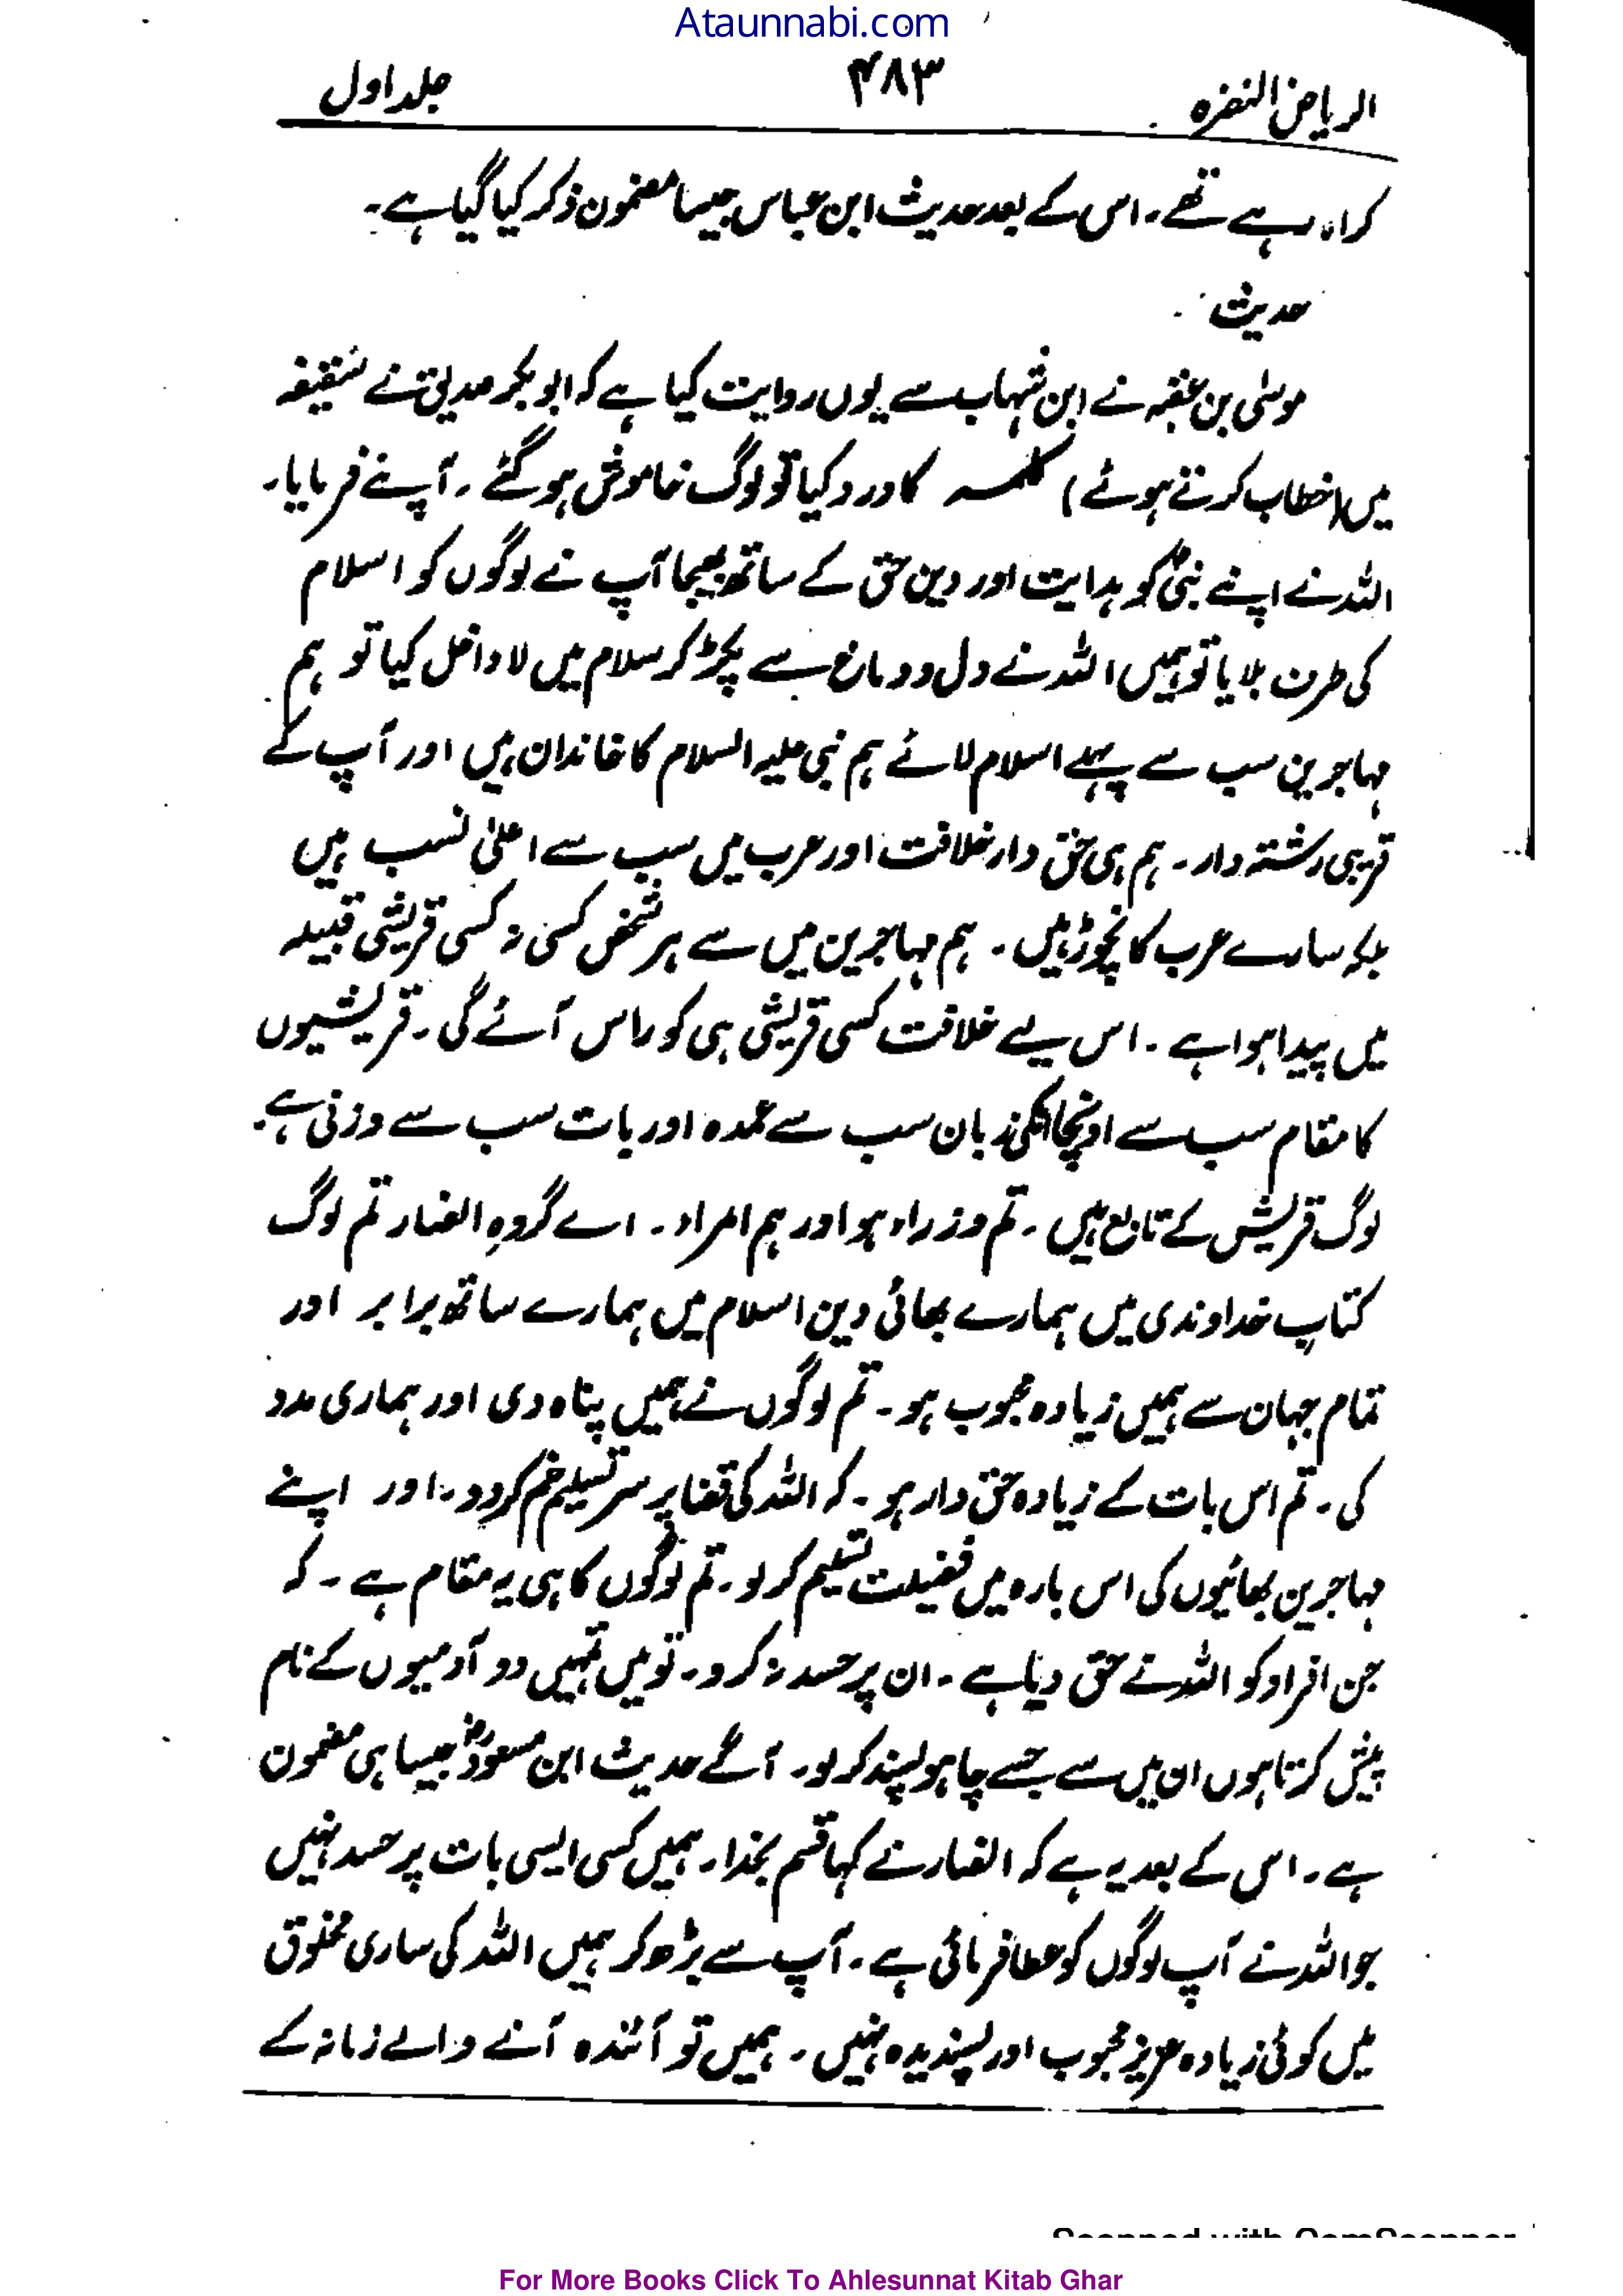 Ataunnabi.com
الریاض النضرہ ۴۸۳ جلد اول
کراہ رہے تھے۔ اس کے بعد حدیث ابن عباس جیسا مضمون ذکر کیا گیا ہے۔
حدیث
موسٰی بن عقبہ نے ابن شہاب سے یوں روایت کیا ہے کہ ابو بکر صدیق نے سقیفہ
میں (خطاب کرتے ہوئے) کلمہ کا ورد کیا تو لوگ خاموش ہو گئے ۔ آپ نے فرمایا۔
اللہ نے اپنے نبیؐ کو ہدایت اور دین حق کے ساتھ بھیجا آپ نے لوگوں کو اسلام
کی طرف بلایا تو ہمیں اللہ نے دل و دماغ سے پکڑ کر سلام میں لا داخل کیا تو ہم
مہاجرین سب سے پہلے اسلام لائے ہم نبی علیہ السلام کا خاندان ہیں اور آپ کے
قریبی رشتہ دار ۔ ہم ہی حق دار خلافت اور عرب میں سب سے اعلیٰ نسب ہیں
بلکہ سارے عرب کا نچوڑ ہیں ۔ ہم مہاجرین میں سے ہر شخص کسی نہ کسی قریشی قبیلہ
میں پیدا ہوا ہے ۔ اس لیے خلافت کسی قریشی ہی کو راس آئے گی ۔ قریشیوں
کا مقام سب سے اونچا انکی زبان سب سے عمدہ اور بات سب سے وزنی ہے۔
لوگ قریش کے تابع ہیں ۔ تم وزراء ہو اور ہم امراء ۔ اے گروہِ انصار تم لوگ
کتابِ خداوندی میں ہمارے بھائی دین اسلام میں ہمارے ساتھ برابر اور
تمام جہان سے ہمیں زیادہ محبوب ہو ۔ تم لوگوں نے ہمیں پناہ دی اور ہماری مدد
کی ۔ تم اس بات کے زیادہ حق دار ہو ۔ کہ اللہ کی قضا پر سر تسلیم خم کر دو ۔ اور اپنے
مہاجرین بھائیوں کی اس بارہ میں فضیلت تسلیم کر لو ۔ تم لوگوں کا ہی یہ مقام ہے ۔ کہ
جن افراد کو اللہ نے حق دیا ہے ۔ ان پر حسد نہ کرو ۔ تو میں تمہیں دو آدمیوں کے نام
پیش کرتا ہوں ان میں سے جسے چاہو پسند کر لو ۔ آگے حدیث ابن مسعودؓ جیسا ہی مضمون
ہے ۔ اس کے بعد یہ ہے کہ انصار نے کہا قسم بخدا ۔ ہمیں کسی ایسی بات پر حسد نہیں
جو اللہ نے آپ لوگوں کو عطا فرمائی ہے ۔ آپ سے بڑھ کر ہمیں اللہ کی ساری مخلوق
میں کوئی زیادہ عزیز محبوب اور پسندیدہ نہیں ۔ ہمیں تو آئندہ آنے والے زمانہ کے
Scanned with CamScanner
For More Books Click To Ahlesunnat Kitab Ghar